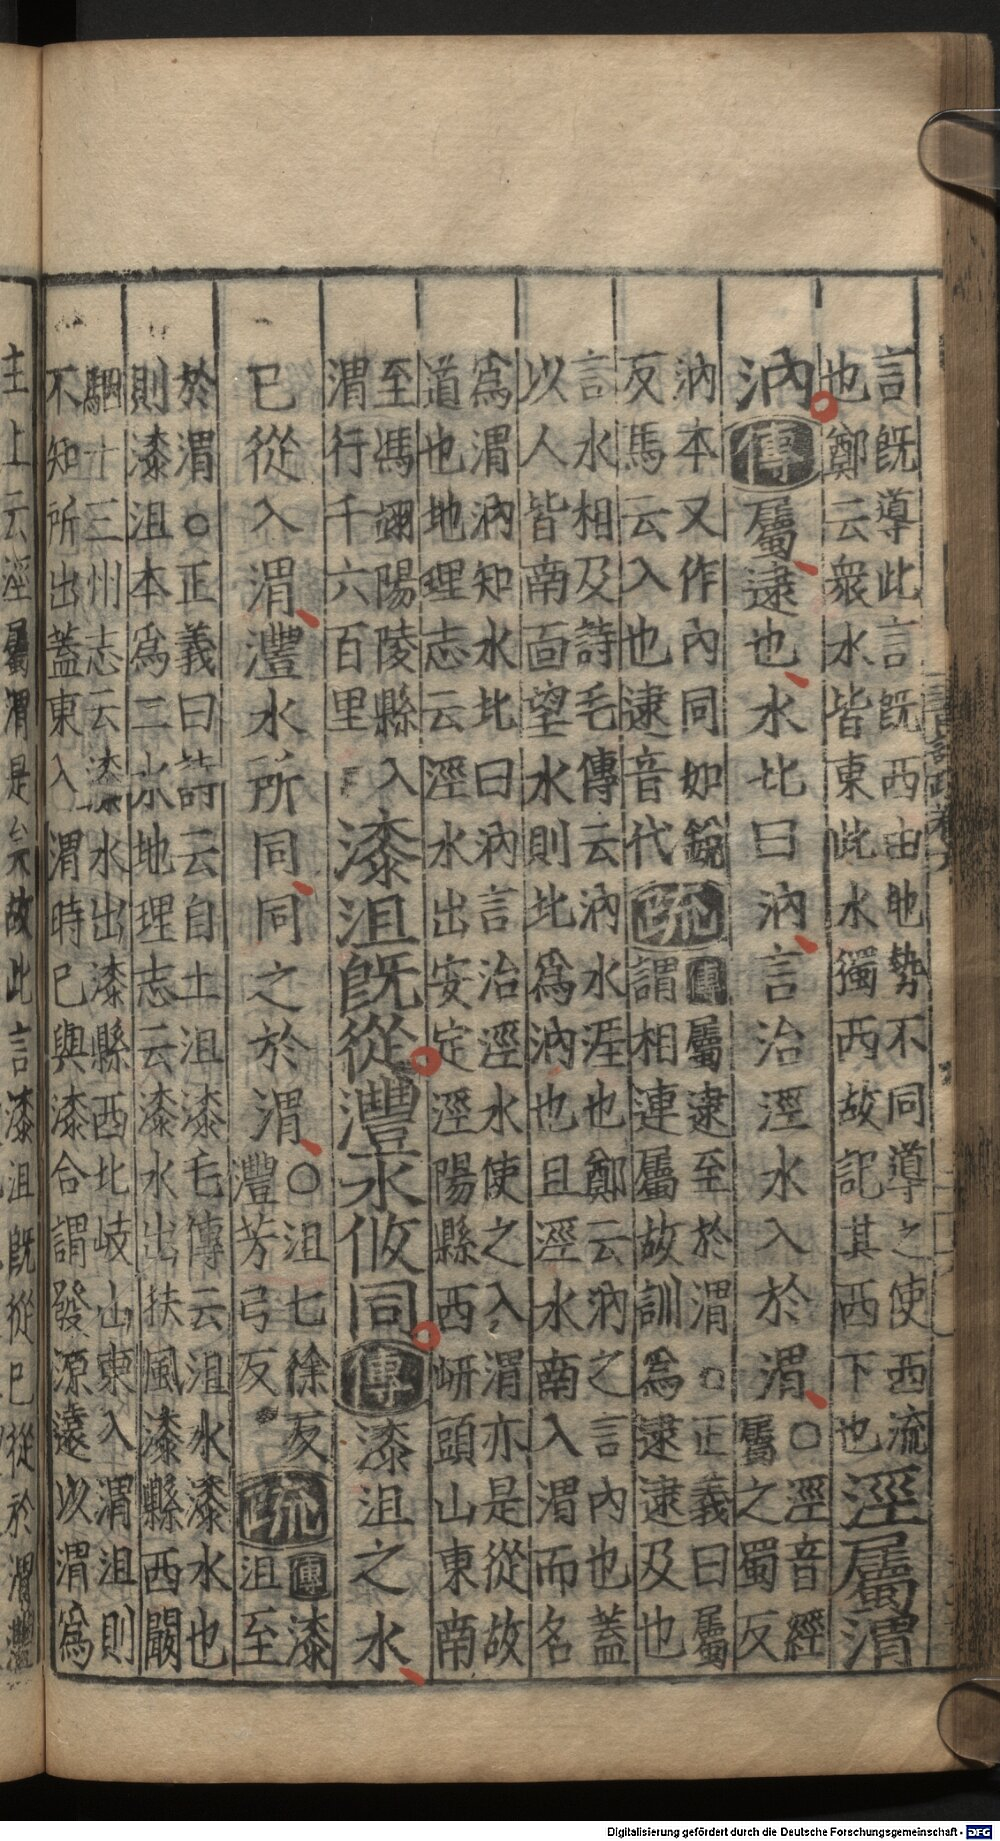 言旣導此言旣西由地勢不同導之使西流
也鄭云衆水皆東此水獨西故記其西下也
涇屬渭
汭
傳
屬逮也水北曰汭言治涇水入於渭
○涇音經
屬之蜀反
汭本又作內同如銳
反馬云入也逮音代
疏
傳屬逮至於渭○正義曰屬
謂相連屬故訓爲逮逮及也
言水相及詩毛傳云汭水涯也鄭云汭之言內也蓋
以人皆南面望水則北爲汭也且涇水南入渭而名
爲渭汭知水北曰汭言治涇水使之入渭亦是從故
道也地理志云涇水出安定涇陽縣西岍頭山東南
至馮翊陽陵縣入
渭行千六百里
漆沮旣從灃水攸同
傳
漆沮之水
已從入渭灃水所同同之於渭
○沮七徐反
灃芳弓反
疏
傳漆
沮至
於渭○正義曰詩云自土沮漆毛傳云沮水漆水也
則漆沮本爲二水地理志云漆水出扶風漆縣西闞
駰十三州志云漆水出漆縣西北岐山東入渭沮則
不知所出蓋東入渭時已與漆合謂發源遠以渭爲
主上云涇屬渭是故此言漆沮旣從已從於渭灃
Digitalisierung gefördert durch die Deutsche Forschungsgemeinschaft - DFG